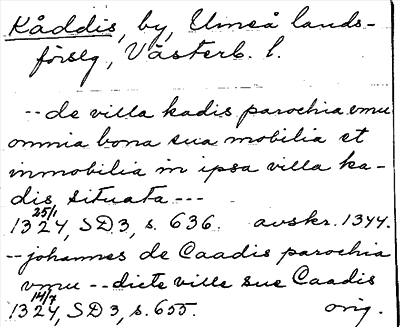 Kåddis, by, Umeå lands-
förslg, Västerb. l.
--de villa kadis parochia vmu
omnia bona sua mobilia et
inmobilia in ipsa villa ka-
dis, situata ---
25/1
1324, SD3, s. 636. avskr. 1344.
--johannes de Caadis parochia
vmu -- diete ville sue Caadis
14/7
1324, SD3, s. 655. orig.